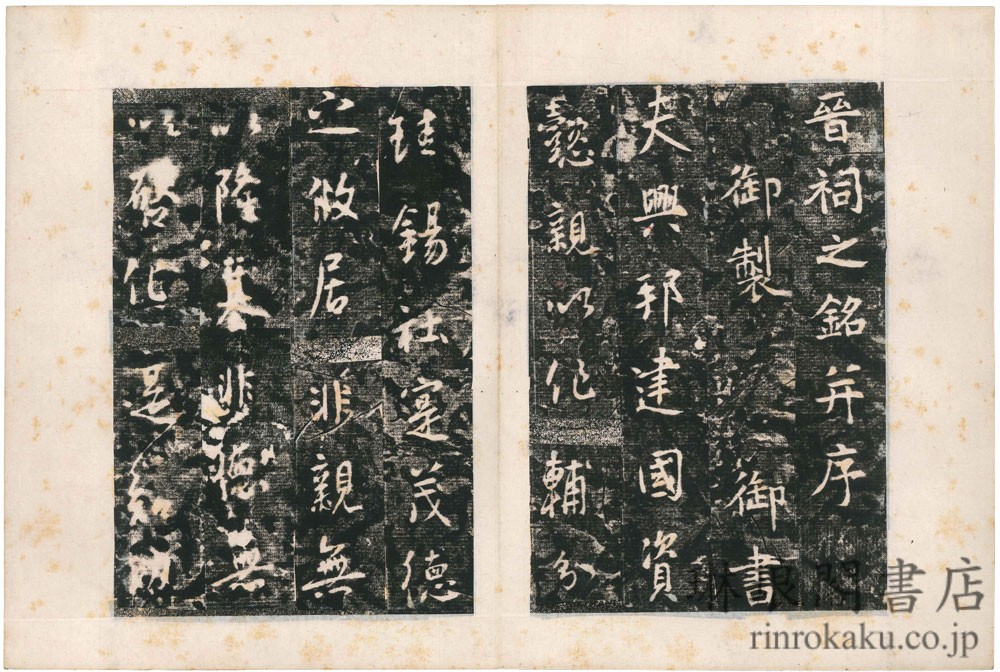 晉祠之銘并序
御製御書
夫興邦建國資
懿親以作輔分
珪錫社寔茂德
之攸居非親無
以隆基非德無
以啓化是知
琳琅閣書店
rinrokaku.co.jp